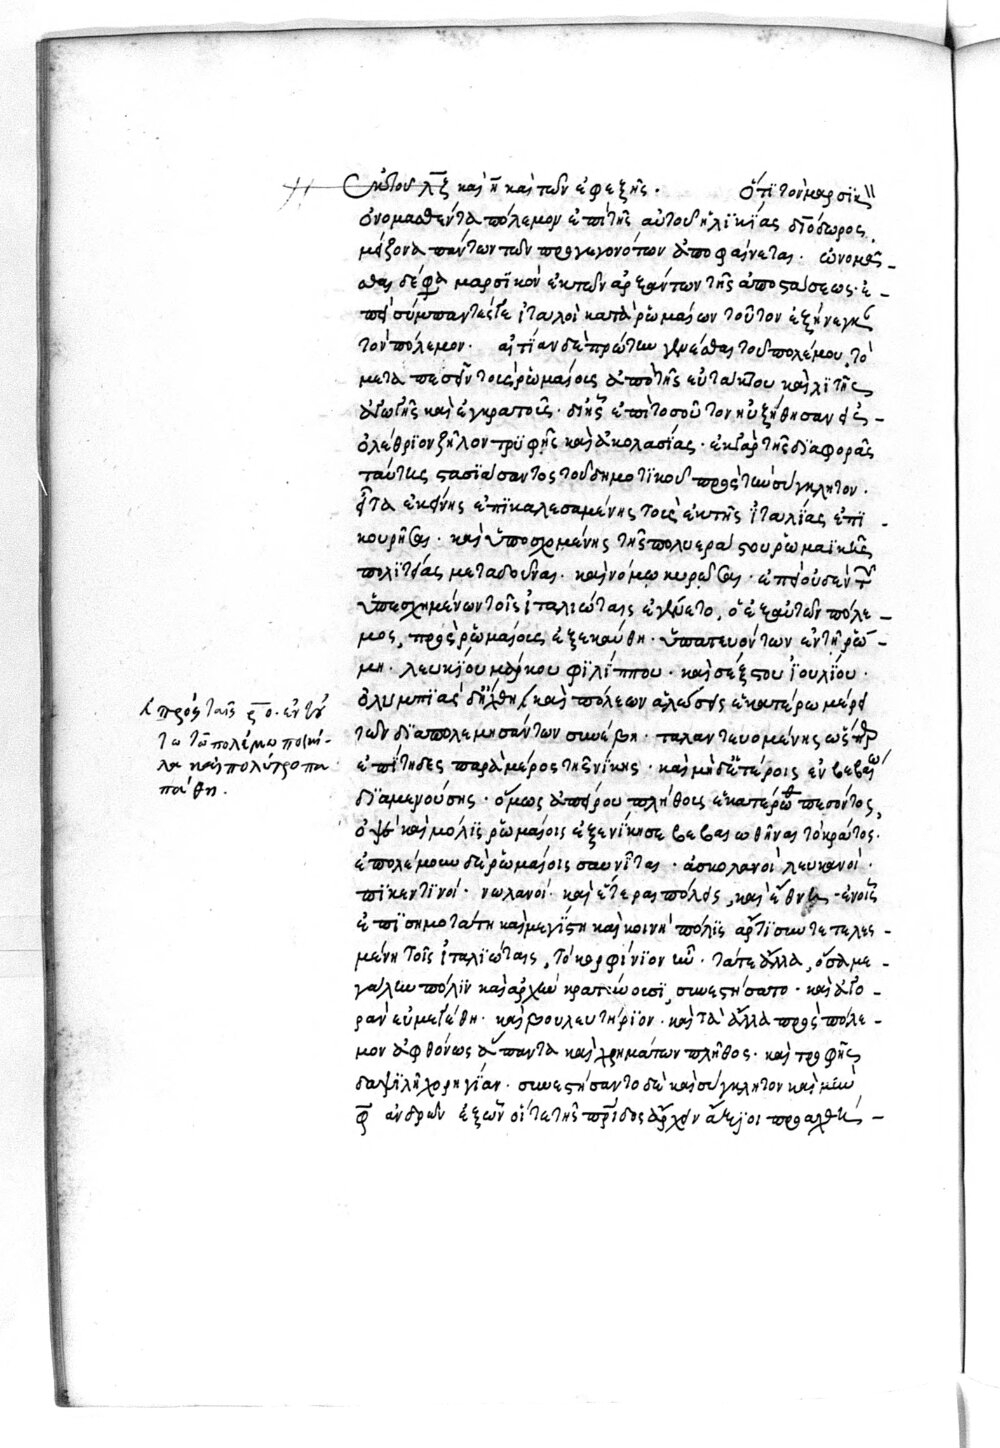 Ἐκ τοῦ λζ καὶ η καὶ τῶν ἐφεξῆς. Ὅτι τὸν μαρσικὸν
ὀνομασθέντα πόλεμον ἐπὶ τῆς αὐτοῦ ἡλικίας διόδωρος
μείζονα πάντων τῶν προγεγονότων ἀποφαίνεται. ὠνομᾶσ-
θαι δέ φησι μαρσικὸν ἐκ τῶν ἀρξάντων τῆς ἀποστάσεως. ἐ-
πεὶ σύμπαντές γε ἰταλοὶ κατὰ ῥωμαίων τοῦτον ἐξήνεγκαν
τὸν πόλεμον. αἰτίαν δὲ πρώτην γενέσθαι τοῦ πολέμου, τὸ
μεταπεσεῖν τοὺς ῥωμαίους ἀπὸ τῆς εὐτάκτου καὶ λιτῆς
ἀγωγῆς καὶ ἐγκρατοῦς. δι' ἧς ἐπὶ τοσοῦτον ηὐξήθησαν εἰς
ὀλέθριον ζῆλον τρυφῆς καὶ ἀκολασίας. ἐκ γὰρ τῆς διαφορᾶς
ταύτης στασιάσαντος τοῦ δημοτικοῦ πρὸς τὴν σύγκλητον.
εἶτα ἐκείνης ἐπικαλεσαμένης τοὺς ἐκ τῆς ἰταλίας ἐπι-
κουρῆσαι. καὶ ὑποσχομένης τῆς πολυεράστου ῥωμαϊκῆς
πολιτείας μεταδοῦναι. καὶ νόμῳ κυρῶσαι. ἐπεὶ οὐδὲν τῶν
ὑπεσχημένων τοῖς ἰταλιώταις ἐγένετο, ὁ ἐξ αὐτῶν πόλε-
μος, πρὸς ῥωμαίους ἐξεκαύθη. ὑπατευόντων ἐν τῇ ῥώ-
μῃ. λευκίου μάρκου φιλίππου. καὶ σέξτου ἰουλίου.
ὀλυμπιὰς δ' ἤχθη καὶ πόλεων ἁλώσεις ἑκατέρῳ μέρει
πρὸς ταῖς ρο. ἐν τού
τῳ τῷ πολέμῳ ποικί-
λα καὶ πολύτροπα
πάθη.
τῶν διαπολεμησάντων συνέβη. ταλαντευομένης ὥσπερ
ἐπίτηδες παρὰ μέρος τῆς νίκης. καὶ μηδετέροις ἐν βεβαίῳ
διαμενούσης. ὅμως ἀπείρου πλήθους ἑκατέρωθεν πεσόντος,
ὀψὲ καὶ μόλις ῥωμαίοις ἐξενίκησε βεβαιωθῆναι τὸ κράτος.
ἐπολέμουν δὲ ῥωμαίοις σαυνῖται. ἀσκολανοί λευκανοί.
πικεντῖνοι. νωλανοί. καὶ ἕτεραι πόλεις, καὶ ἔθνη. ἐν οἷς
ἐπισημοτάτη καὶ μεγίστη καὶ κοινὴ πόλις ἄρτι συντετελεσ-
μένη τοῖς ἰταλιώταις, τὸ κορφίνιον ἦν. τά τε ἄλλα, ὅσα με-
γάλην πόλιν καὶ ἀρχὴν κρατύνουσι, συνεστήσαντο. καὶ ἀγο-
ρὰν εὐμεγέθη. καὶ βουλευτήριον. καὶ τὰ ἄλλα πρὸς πόλε-
μον ἀφθόνως ἅπαντα καὶ χρημάτων πλῆθος. καὶ τροφῆς
δαψιλῆ χορηγίαν. συνεστήσαντο δὲ καὶ σύγκλητον κοινὴν
φ ἀνδρῶν ἐξ ὧν οἵ τε τῆς πατρίδος ἄρχειν ἄξιοι προαχθή-